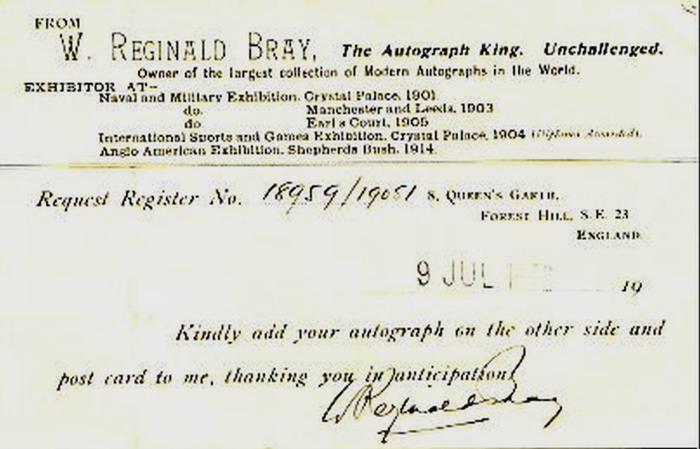 FROM
W. REGINALD BRAY, The Autograph King. Unchallenged.
Owner of the largest collection of Modern Autographs in the World.
EXHIBITOR AT-
Naval and Military Exhibition, Crystal Palace, 1901
do. Manchester and Leeds, 1903
do Earl's Court, 1905
International Sports and Games Exhibition, Crystal Palace, 1904 (Diploma Awarded).
Anglo American Exhibition, Shepherds Bush, 1914.
Request Register No. 18959/19051 8, QUEEN'S GARTH,
FOREST HILL, S.E. 23
ENGLAND.
9 JUL 19
Kindly add your autograph on the other side and
post card to me, thanking you in anticipation
W Reginald Bray